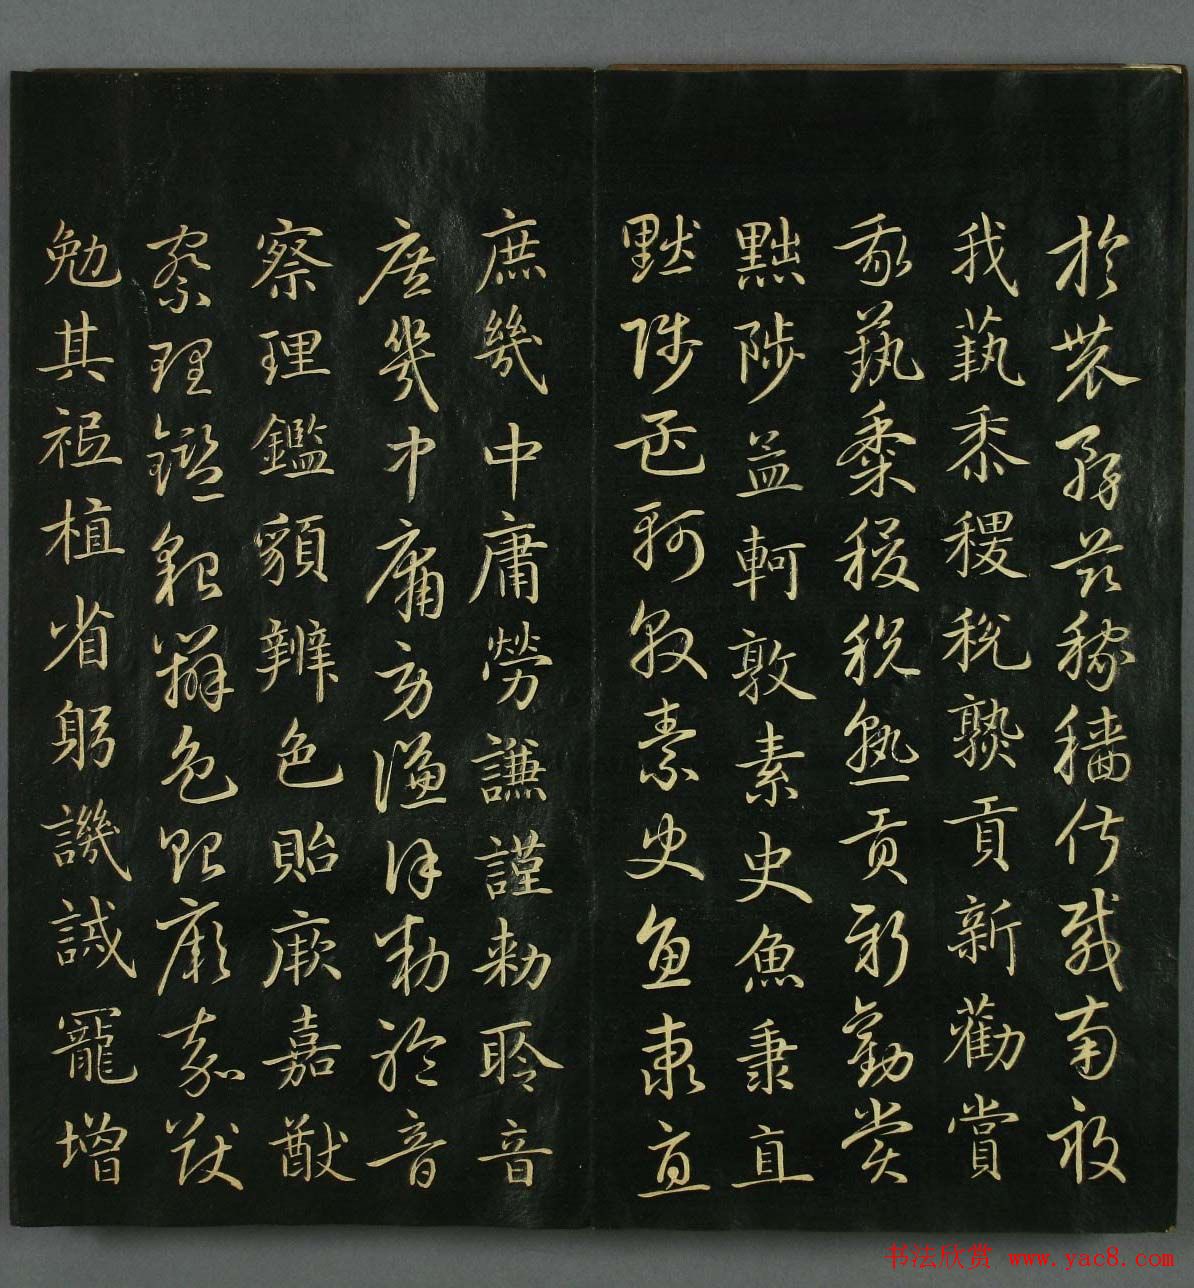 於農務茲稼穡俶載南畝
我蓺黍稷稅熟貢新勸賞
我蓺黍稷稅熟貢新勸賞
黜陟孟軻敦素史魚秉直
黜陟孟軻敦素史魚秉直
庶幾中庸勞謙謹勑聆音
庶幾中庸勞謙謹勑聆音
察理鑑䫉辨色貽厥嘉猷
察理鑑貌辨色貽厥嘉猷
勉其祗植省躬譏誡寵增
书法欣赏 www.yac8.com